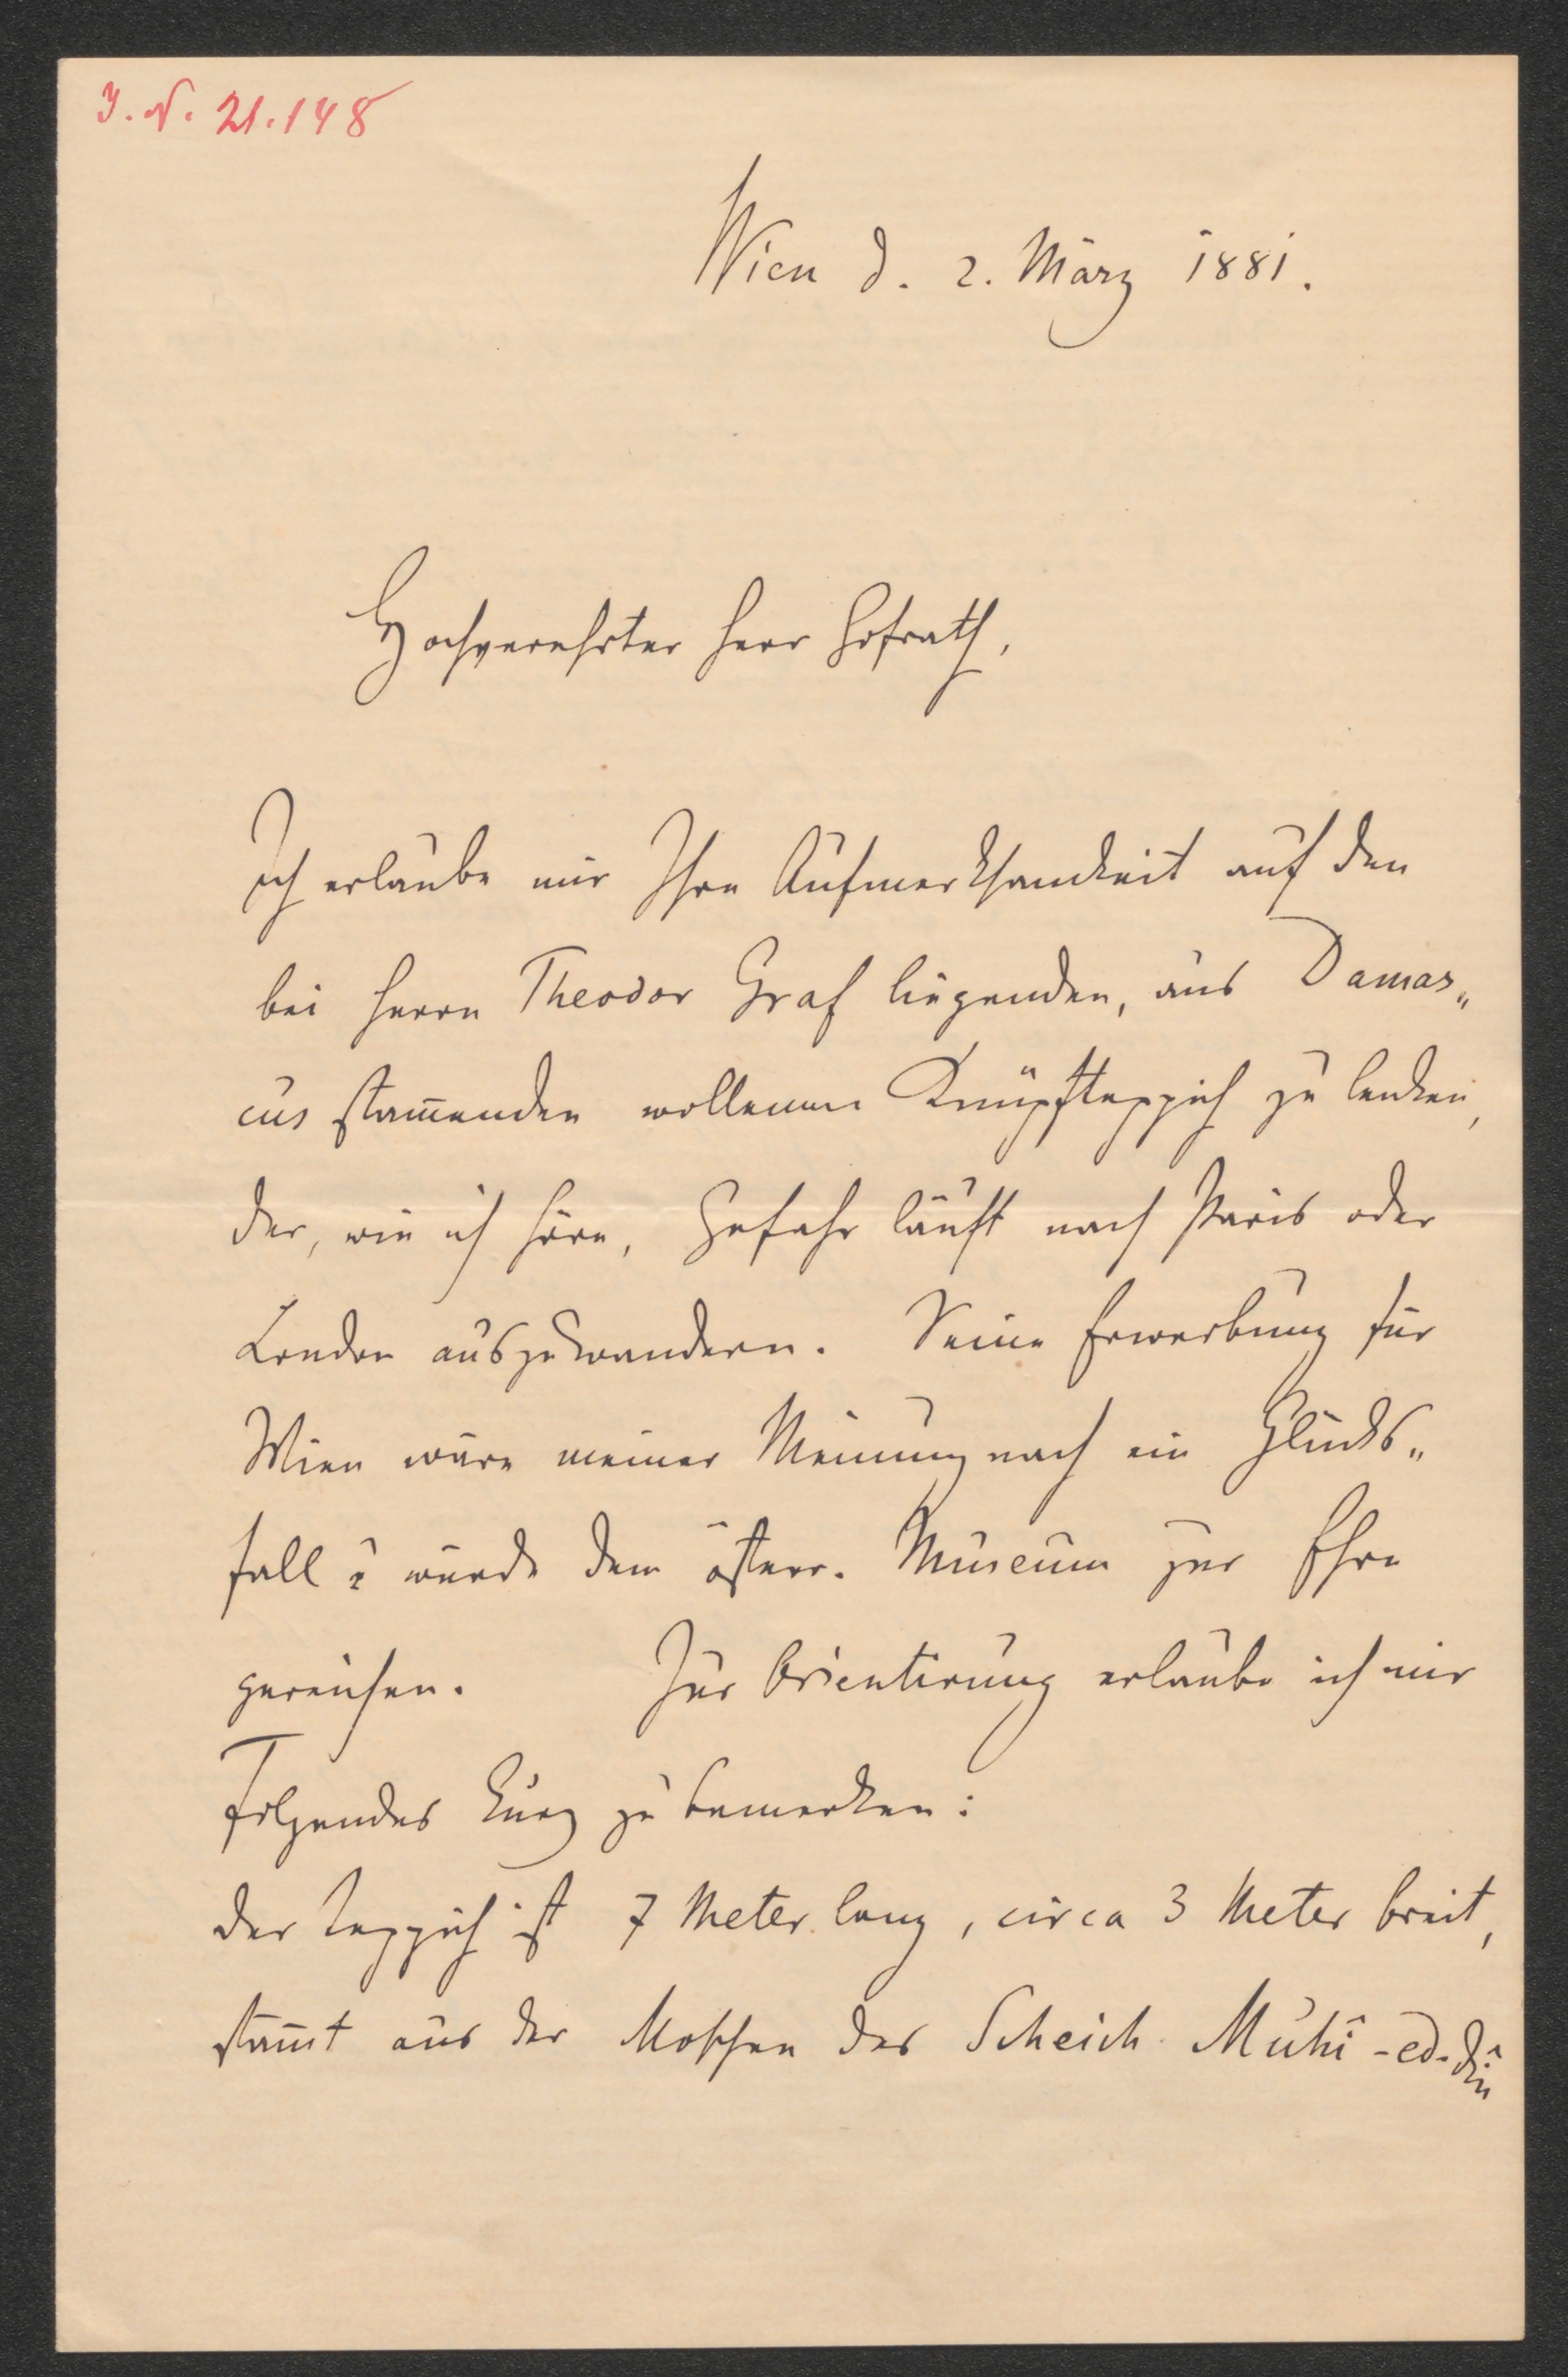 J. N. 21.148
Wien d. 2. März 1881.
Hochverehrter Herr Hofrath,
Ich erlaube mir Ihre Aufmerksamkeit auf den
bei Herrn Theodor Graf liegenden, aus Damas„
cus stam̄enden wollenen Knüpfteppich zu lenken,
der, wie ich höre, Gefahr läuft nach Paris oder
London auszuwandern. Seine Erwerbung für
Wien wäre meiner Meinung nach ein Glücks„
fall u würde dem österr. Museum zur Ehre
gereichen. Zur Orientirung erlaube ich mir
Folgendes kurz zu bemerken:
Der Teppich ist 7 Meter lang, circa 3 Meter breit,
stam̄t aus der Moschee des Scheich Muhî-ed-dîn